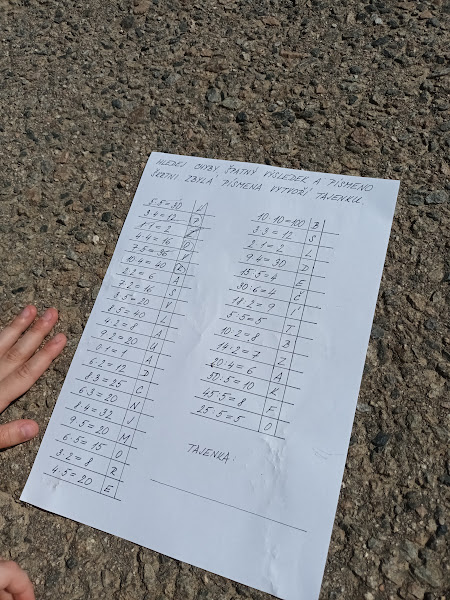 HLEDEJ CHYBY, ŠPATNÝ VÝSLEDEK A PÍSMENO
ŠKRTNI. ZBYLÁ PÍSMENA VYTVOŘÍ TAJENKU.
5·5=30
3·4=12 P
1·1=2
4·4=16 O
7·5=36
10·4=40 D
2·2=6 A
7·2=16 S
3·5=20
8·5=40 L
4·2=8 A
9·2=20
2·1=1
6·2=12 D
8·3=25 C
6·3=20 N
8·4=32 V
9·5=20 M
6·5=15 O
3·2=8 R
4·5=20 E
10·10=100 B
3·3=12 S
2:1=2 L
9·4=30 D
15:5=4 E
30:6=4 Č
18:2=9 I
5:5=5 T
10:2=8 B
14:2=7 Z
20:4=6 A
30:5=10
45:5=8 F
25:5=5 O
TAJENKA: